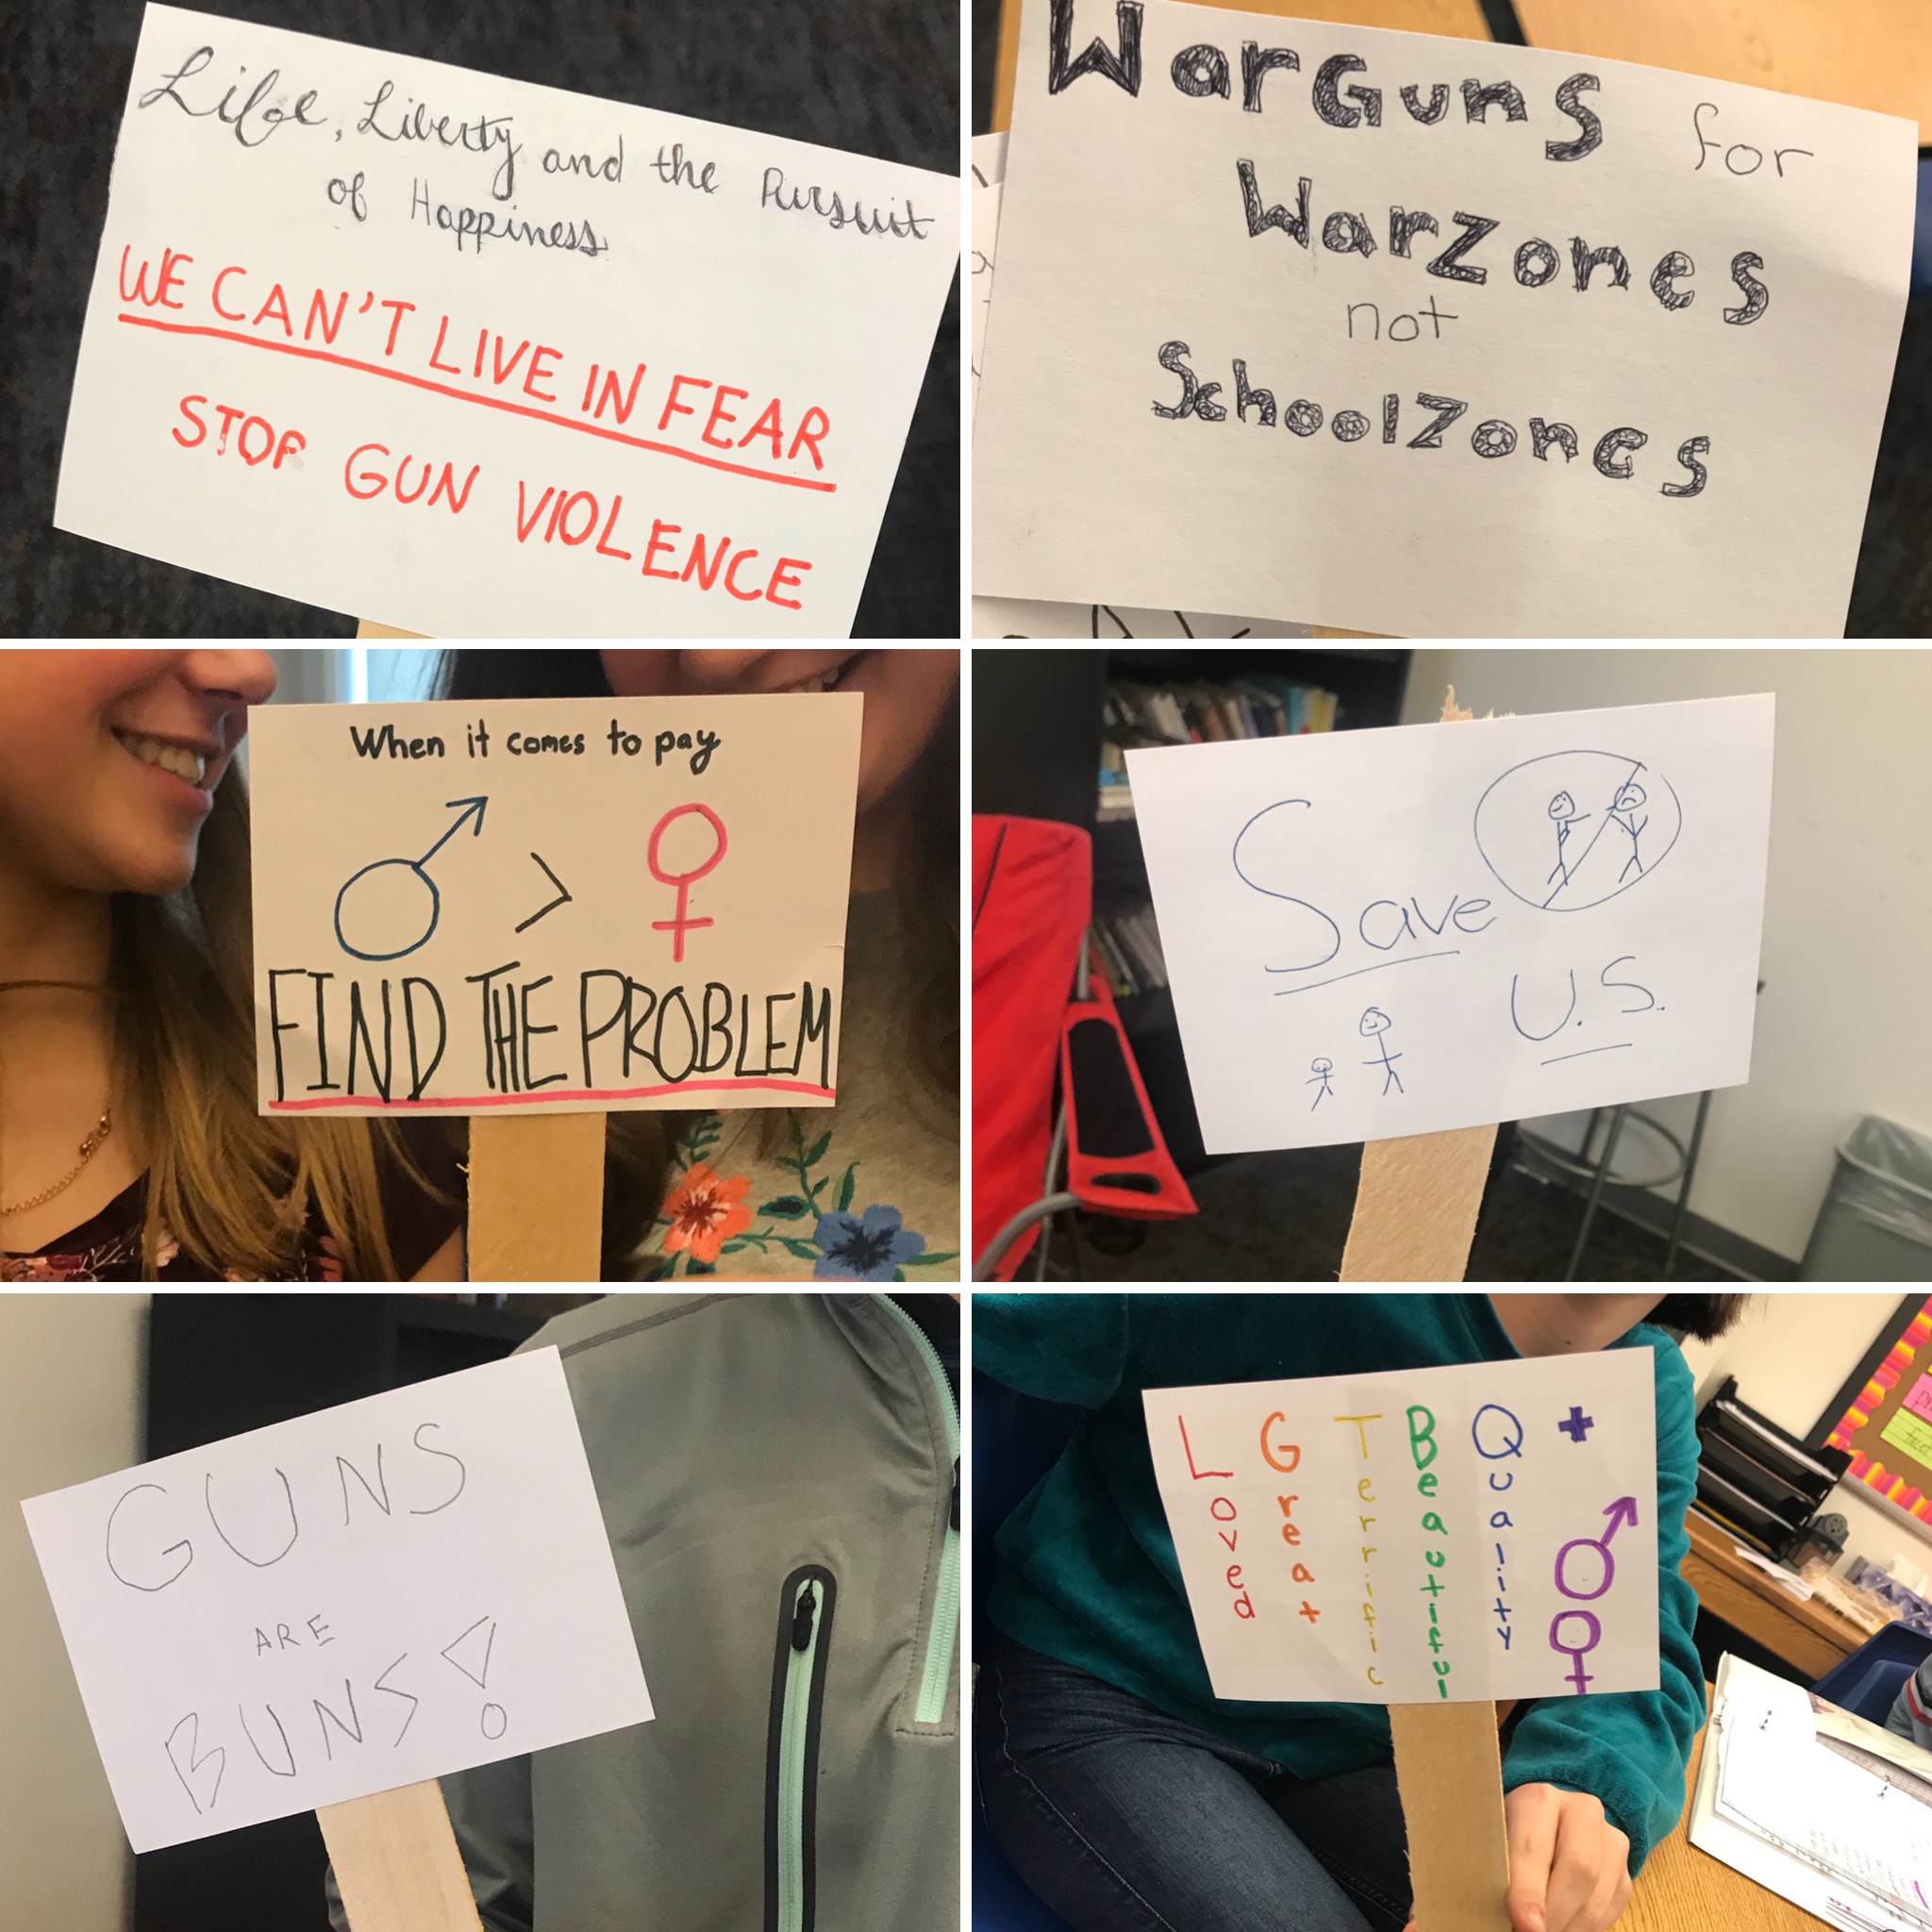 Life, Liberty and the Pursuit
of Happiness
WE CAN'T LIVE IN FEAR
STOP GUN VIOLENCE
WarGuns for
WarZones
not
SchoolZones
When it comes to pay
>
FIND THE PROBLEM
Save
U.S.
GUNS
ARE
BUNS!
Loved
Great
Terrific
Beautiful
Quality
+